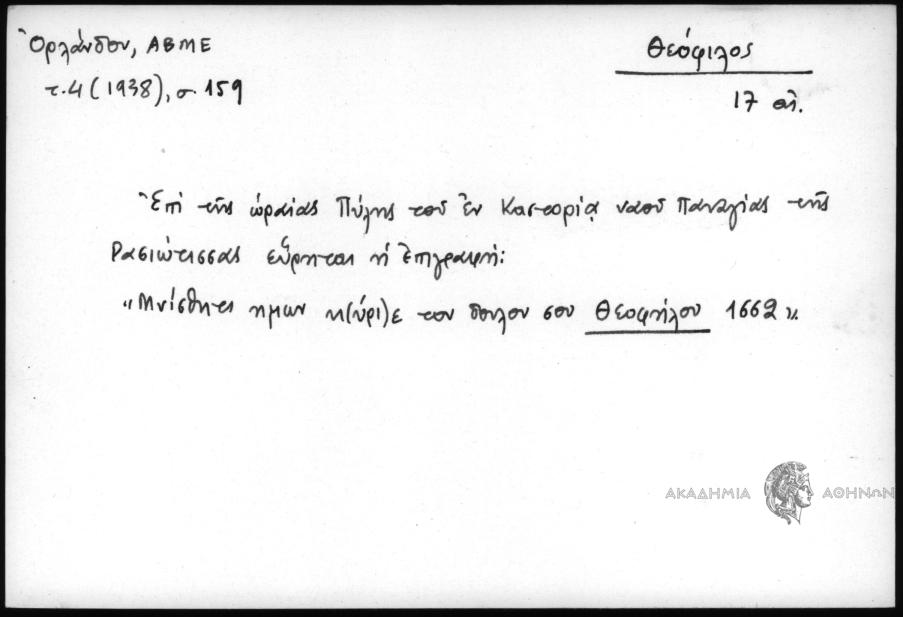 Ὀρλάνδου, ΑΒΜΕ
τ. 4 (1938), σ. 159
Θεόφιλος
17 αἰ.
Ἐπὶ τῆς ὡραίας Πύλης τοῦ ἐν Καστορίᾳ ναοῦ Παναγίας τῆς
Ρασιώτισσας εὕρηται ἡ ἐπιγραφή:
"Μνίσθητι ημων κ(ύρι)ε τον δουλον σου Θεοφήλου 1662".
ΑΚΑΔΗΜΙΑ ΑΘΗΝΩΝ